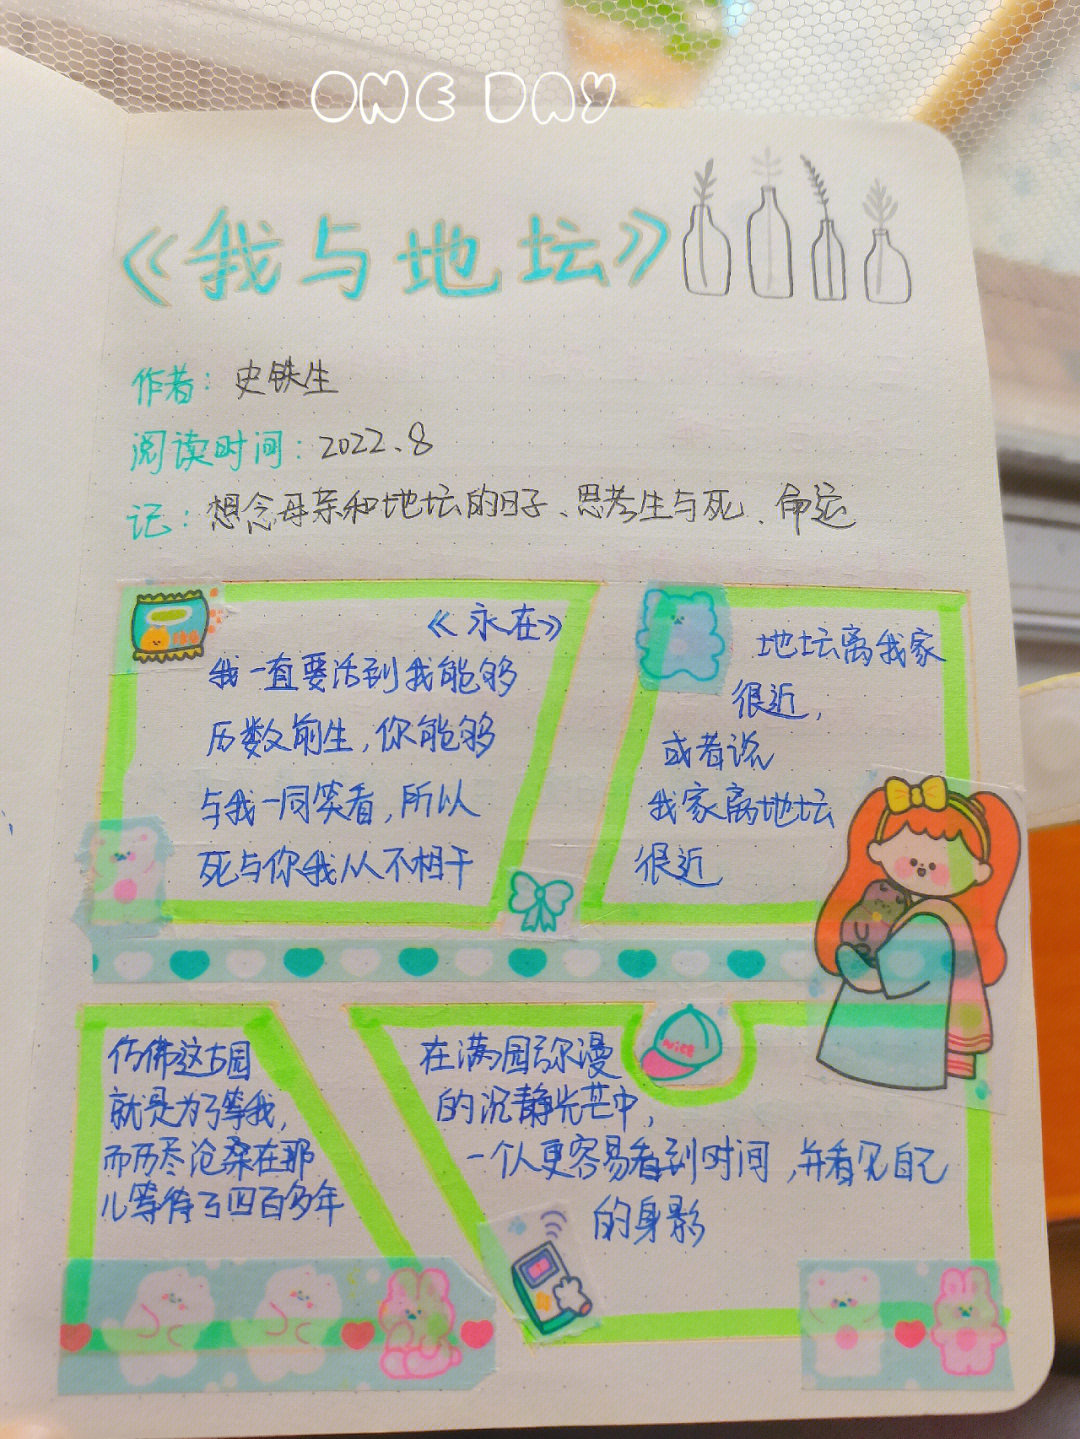 ONE DAY
《我与地坛》
作者：史铁生
阅读时间：2022.8
记：想念母亲和地坛的日子、思考生与死、命运
《永在》
我一直要活到我能够
历数前生，你能够
与我一同笑看，所以
死与你我从不相干
地坛离我家
很近，
或者说
我家离地坛
很近
仿佛这古园
就是为了等我，
而历尽沧桑在那
儿等待了四百多年
nice
在满园弥漫
的沉静光芒中，
一个人更容易看到时间，并看见自己
的身影